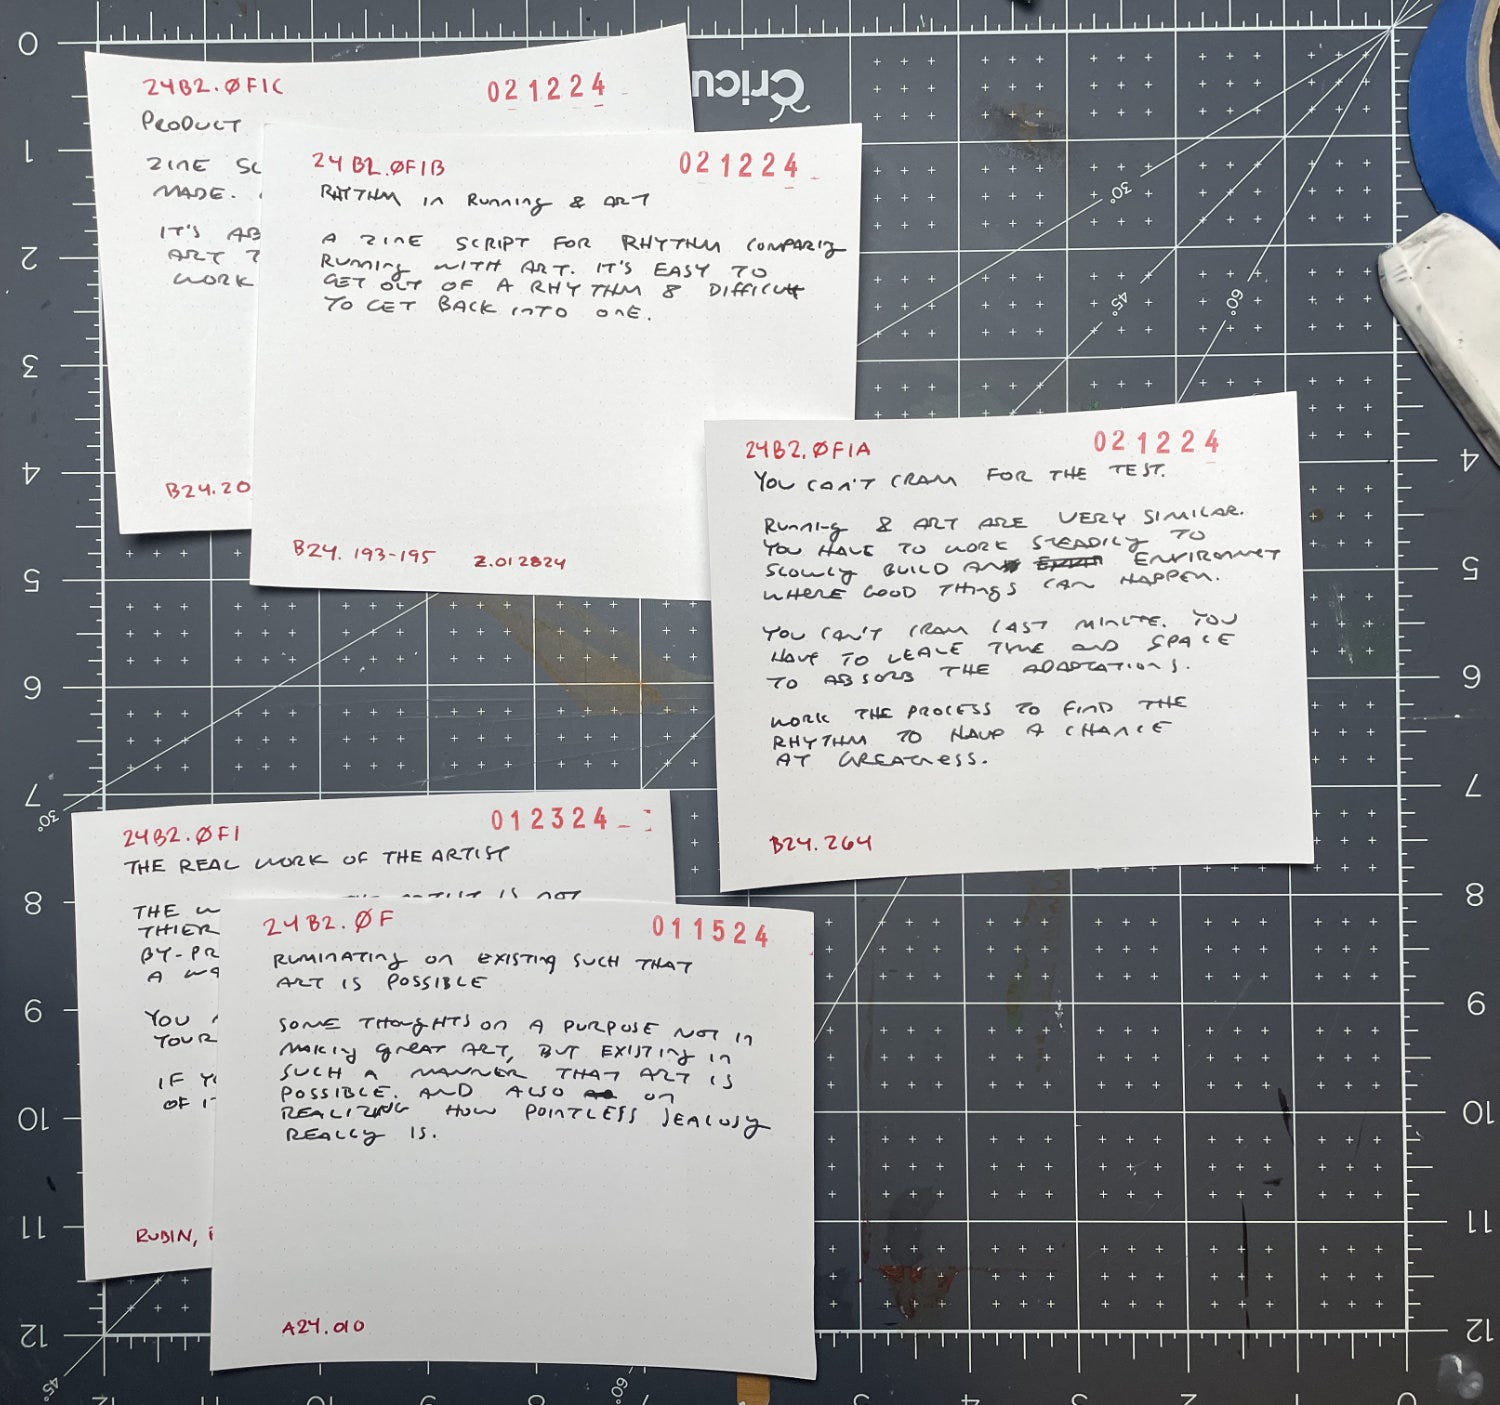 24B2.ØF1C 021224
PRODUCT
ZINE SC
MADE.
IT'S AB
ART T
WORK
B24.20
24B2.ØF1B 021224
RHYTHM in Running & ART
A ZINE SCRIPT FOR RHYTHM COMPARIG
RUNNING WITH ART. IT'S EASY TO
GET OUT OF A RHYTHM & DIFFICULT
TO GET BACK INTO ONE.
B24.193-195 Z.012824
24B2.ØF1A 021224
YOU CAN'T CRAM FOR THE TEST.
Running & ART ARE VERY SIMILAR.
YOU HAVE TO WORK STEADILY TO
SLOWLY BUILD AN ENVIROMNET
WHERE GOOD THINGS CAN HAPPEN.
YOU CAN'T CRAM LAST MINUTE. YOU
HAVE TO LEAVE TIME AND SPACE
TO ABSORB THE ADAPTATIONS.
WORK THE PROCESS TO FIND THE
RHYTHM TO HAVE A CHANCE
AT GREATNESS.
B24.264
24B2.ØF1 012324
THE REAL WORK OF THE ARTIST
THE W ARTIST IS NOT
THIER
BY-PR
A WA
YOU
YOUR
IF Y
OF IT
RUBIN,
24B2.ØF 011524
RUMINATING ON EXISTING SUCH THAT
ART IS POSSIBLE
SOME THOUGHTS ON A PURPOSE NOT IN
MAKING GREAT ART, BUT EXISTING IN
SUCH A MANNER THAT ART IS
POSSIBLE. AND ALSO ON
REALIZING HOW POINTLESS JEALOUSY
REALLY IS.
A24.010
Cricu
0
1
2
3
4
5
6
7
8
9
10
11
12
4
5
6
7
8
9
10
11
12
30°
45°
60°
30°
45°
60°
12 10 9 7 4 3 2 1 0